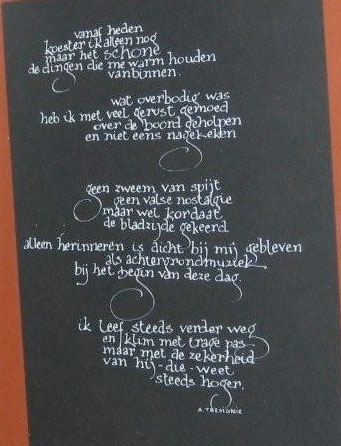 vanaf heden
koester ik alleen nog
maar het schone
de dingen die me warm houden
vanbinnen.
wat overbodig was
heb ik met veel gerust gemoed
over de boord geholpen
en niet eens nagekeken
geen zweem van spijt
geen valse nostalgie
maar wel kordaat
de bladzijde gekeerd
alleen herinneren is dicht bij mij gebleven
als achtergrondmuziek
bij het begin van deze dag.
ik leef steeds verder weg
en klim met trage pas
maar met de zekerheid
van hij-die-weet
steeds hoger.
A. TREMONIE